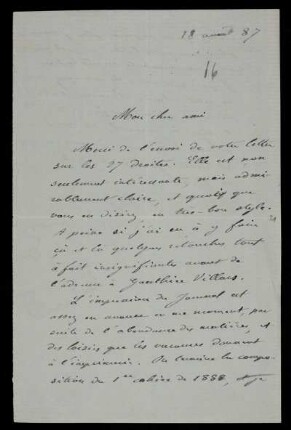 18 août 87
16
Mon cher ami
Merci de l'envoi de votre lettre
sur les 27 droites. Elle est non
seulement intéressante, mais admi
rablement claire, et quoique
vous en disiez en très-bon style.
A peine si j'ai eu à y faire
çà et là quelques retouches tout
à fait insignifiantes avant de
l'adresser à Gauthier Villars.
L'impression du Journal est
assez en avance en ce moment, par
suite de l'abondance des matières, et
des loisirs que les vacances donnent
à l'imprimerie. On termine la compo
sition du 1er cahier de 1888,